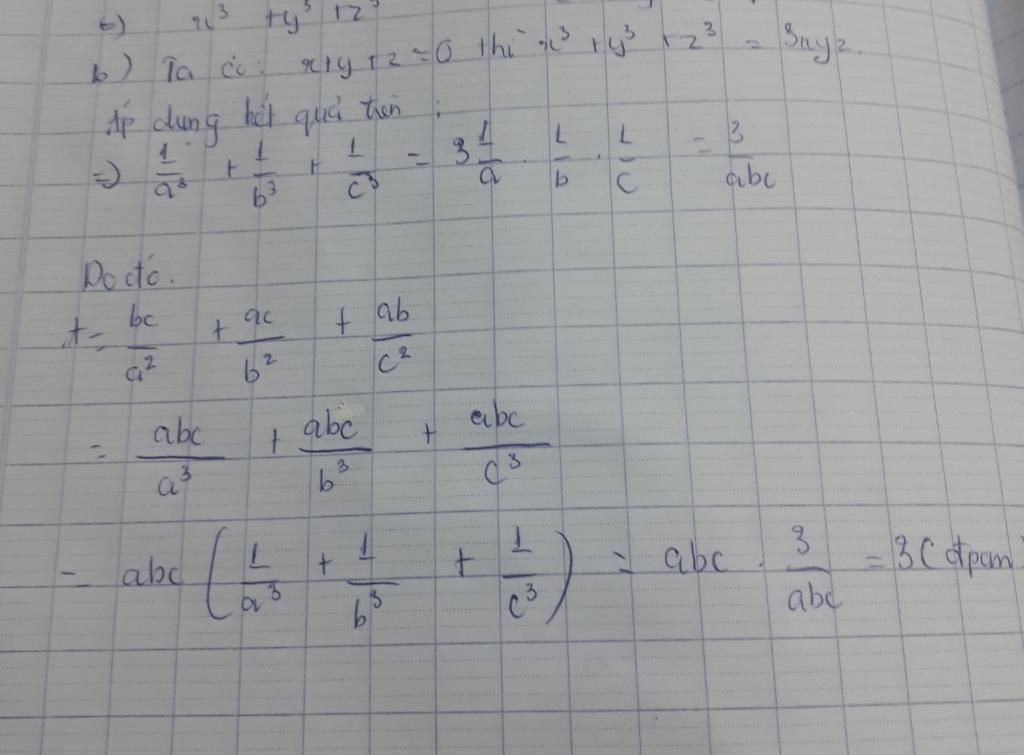 x³ + y³ + z³
b) Ta có: x+y+z=0 thì x³ + y³ + z³ = 3xyz.
Áp dụng kết quả trên :
=> 1/a³ + 1/b³ + 1/c³ = 3 1/a . 1/b . 1/c = 3/abc
Do đó.
A = bc/a² + ac/b² + ab/c²
= abc/a³ + abc/b³ + abc/c³
= abc (1/a³ + 1/b³ + 1/c³) = abc . 3/abc = 3 (đpcm)